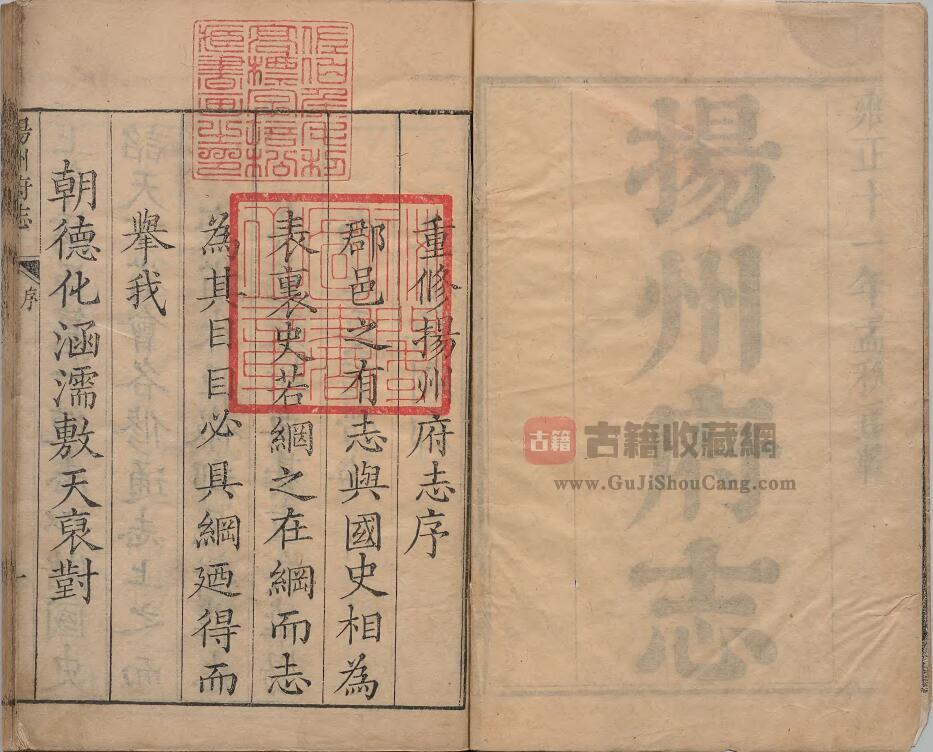 雍正十一年孟秋重
揚州府志
古籍
古籍收藏網
www.GuJiShouCang.com
佐伯侯毛利
高標字培松
藏書畫之印
重修揚州府志序
郡邑之有志與國史相為
表裏史若網之在綱而志
為其目目必具綱廼得而
舉我
朝德化涵濡敷天裒對
揚州府志 序 一